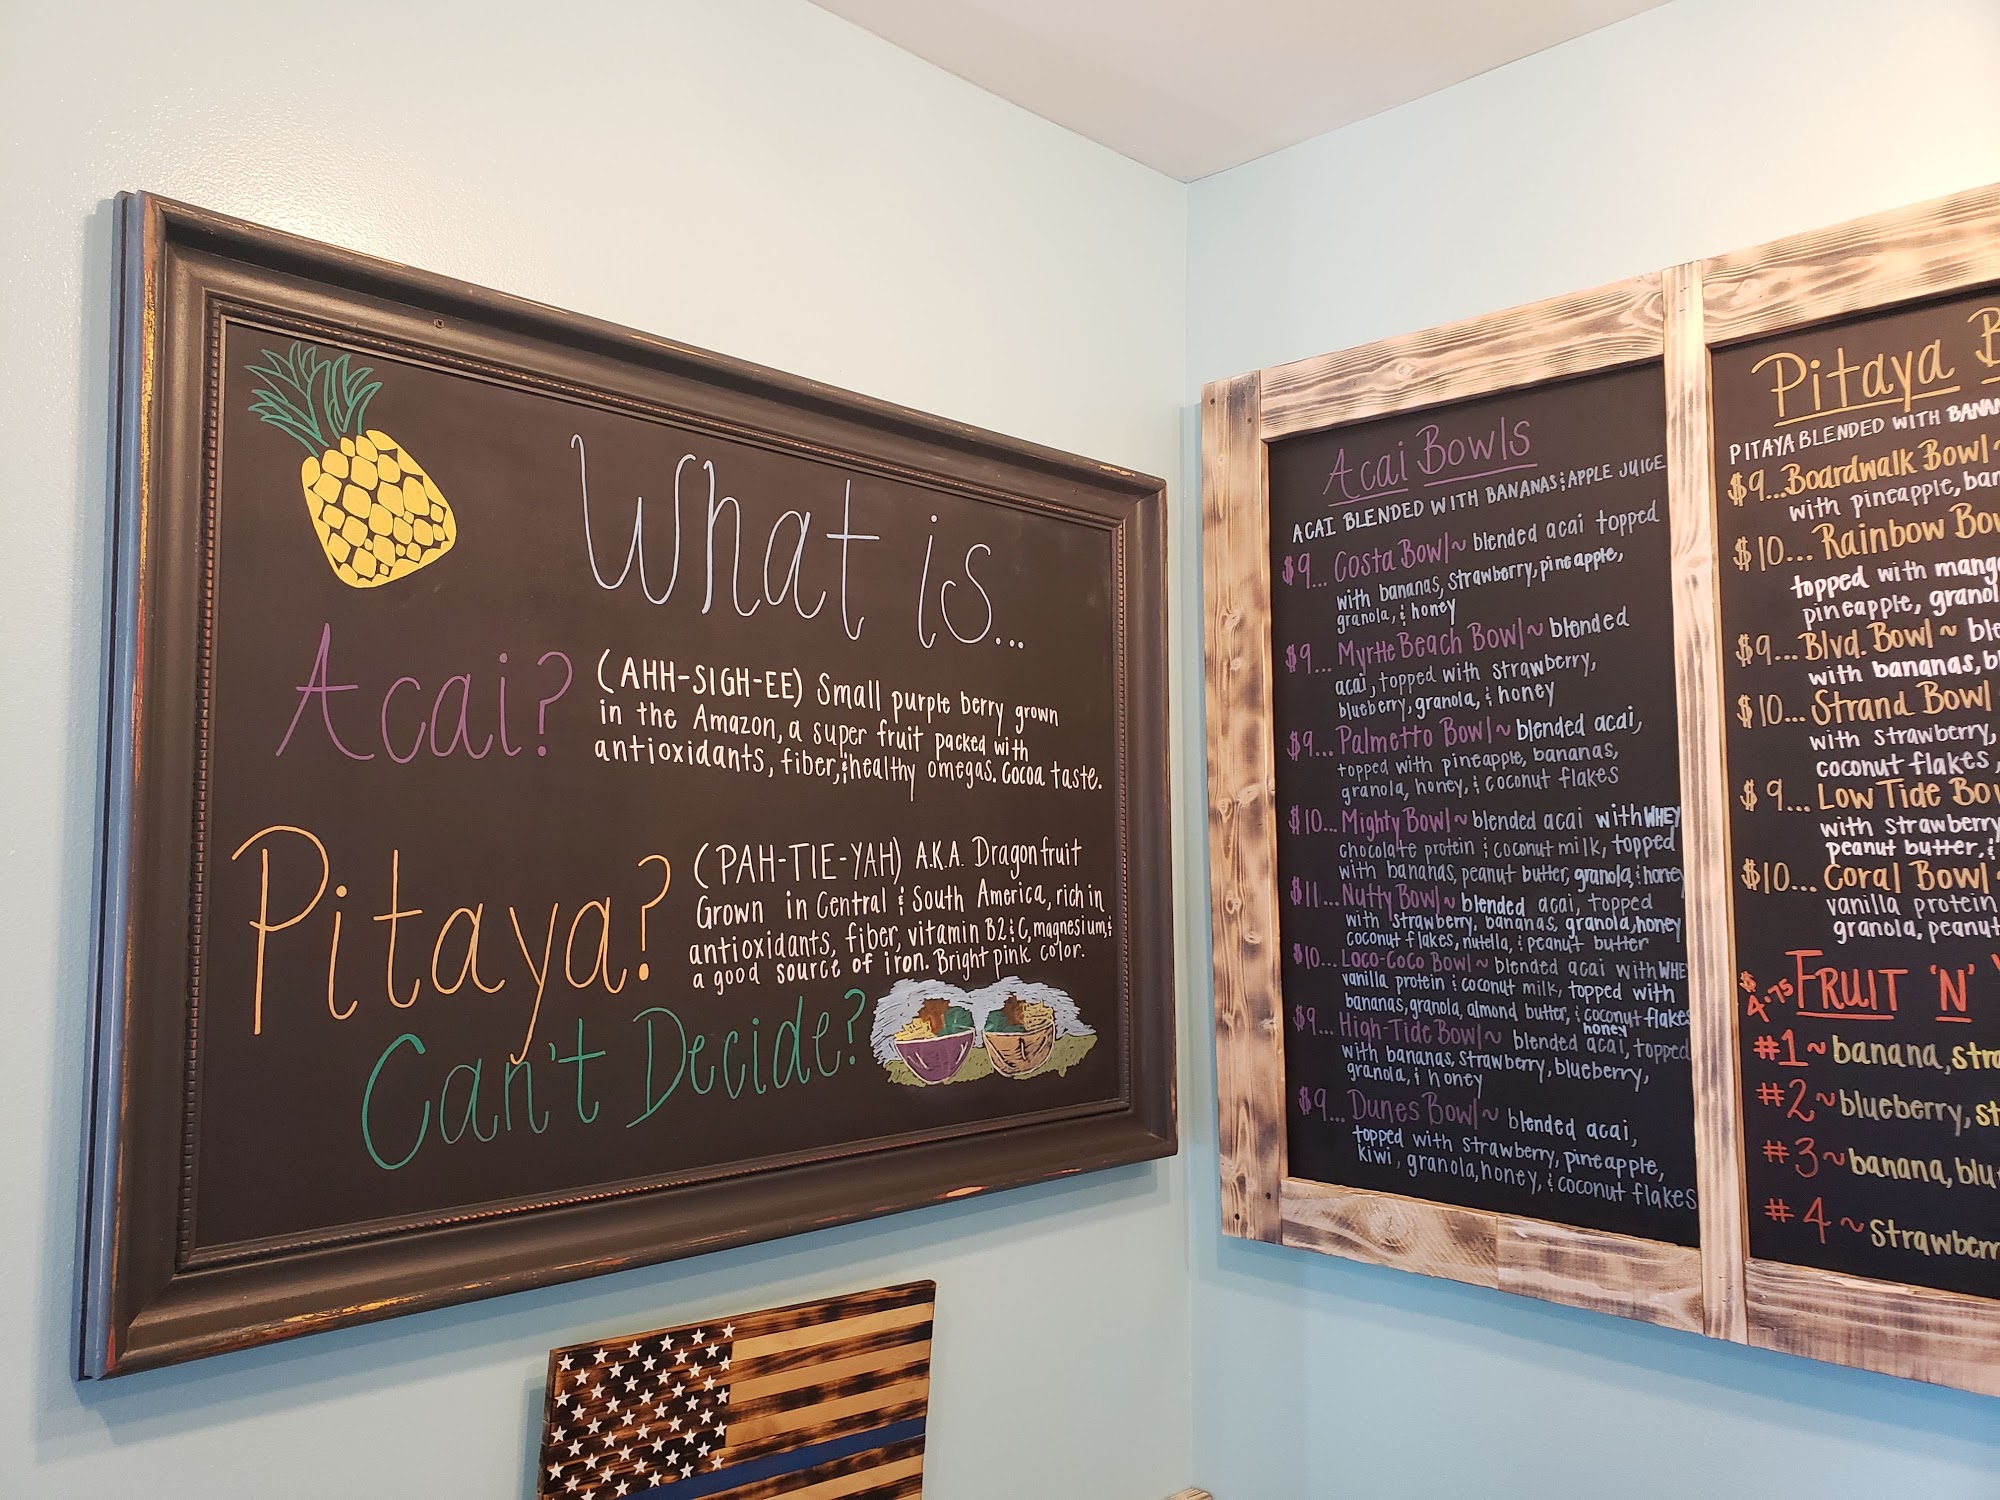 What is...
Acai?
(AHH-SIGH-EE) Small purple berry grown
in the Amazon, a super fruit packed with
antioxidants, fiber, & healthy omegas. Cocoa taste.
Pitaya?
(PAH-TIE-YAH) A.K.A. Dragonfruit
Grown in Central & South America, rich in
antioxidants, fiber, vitamin B2 & C, magnesium, &
a good source of iron. Bright pink color.
Can't Decide?
Acai Bowls
ACAI BLENDED WITH BANANAS & APPLE JUICE
$9... Costa Bowl ~ blended acai topped
with bananas, strawberry, pineapple,
granola, & honey
$9... Myrtle Beach Bowl ~ blended
acai, topped with strawberry,
blueberry, granola, & honey
$9... Palmetto Bowl ~ blended acai,
topped with pineapple, bananas,
granola, honey, & coconut flakes
$10... Mighty Bowl ~ blended acai with WHEY
chocolate protein & coconut milk, topped
with bananas, peanut butter, granola, & honey
$11... Nutty Bowl ~ blended acai, topped
with strawberry, bananas, granola, honey
coconut flakes, nutella, & peanut butter
$10... Loco-Coco Bowl ~ blended acai with WHE
vanilla protein & coconut milk, topped with
bananas, granola, almond butter, & coconut flakes
honey
$9... High-Tide Bowl ~ blended acai, topped
with bananas, strawberry, blueberry,
granola, & honey
$9... Dunes Bowl ~ blended acai,
topped with strawberry, pineapple,
kiwi, granola, honey, & coconut flakes
Pitaya B
PITAYA BLENDED WITH BANAN
$9... Boardwalk Bowl ~
with pineapple, ban
$10... Rainbow Bow
topped with mang
pineapple, granol
$9... Blvd. Bowl ~ ble
with bananas, bl
$10... Strand Bowl
with strawberry,
coconut flakes,
$9... Low Tide Bow
with strawberry
peanut butter, &
$10... Coral Bowl
vanilla protein
granola, peanut
$4.75 FRUIT 'N'
#1 ~ banana, stra
#2 ~ blueberry, st
#3 ~ banana, blu
#4 ~ strawberr